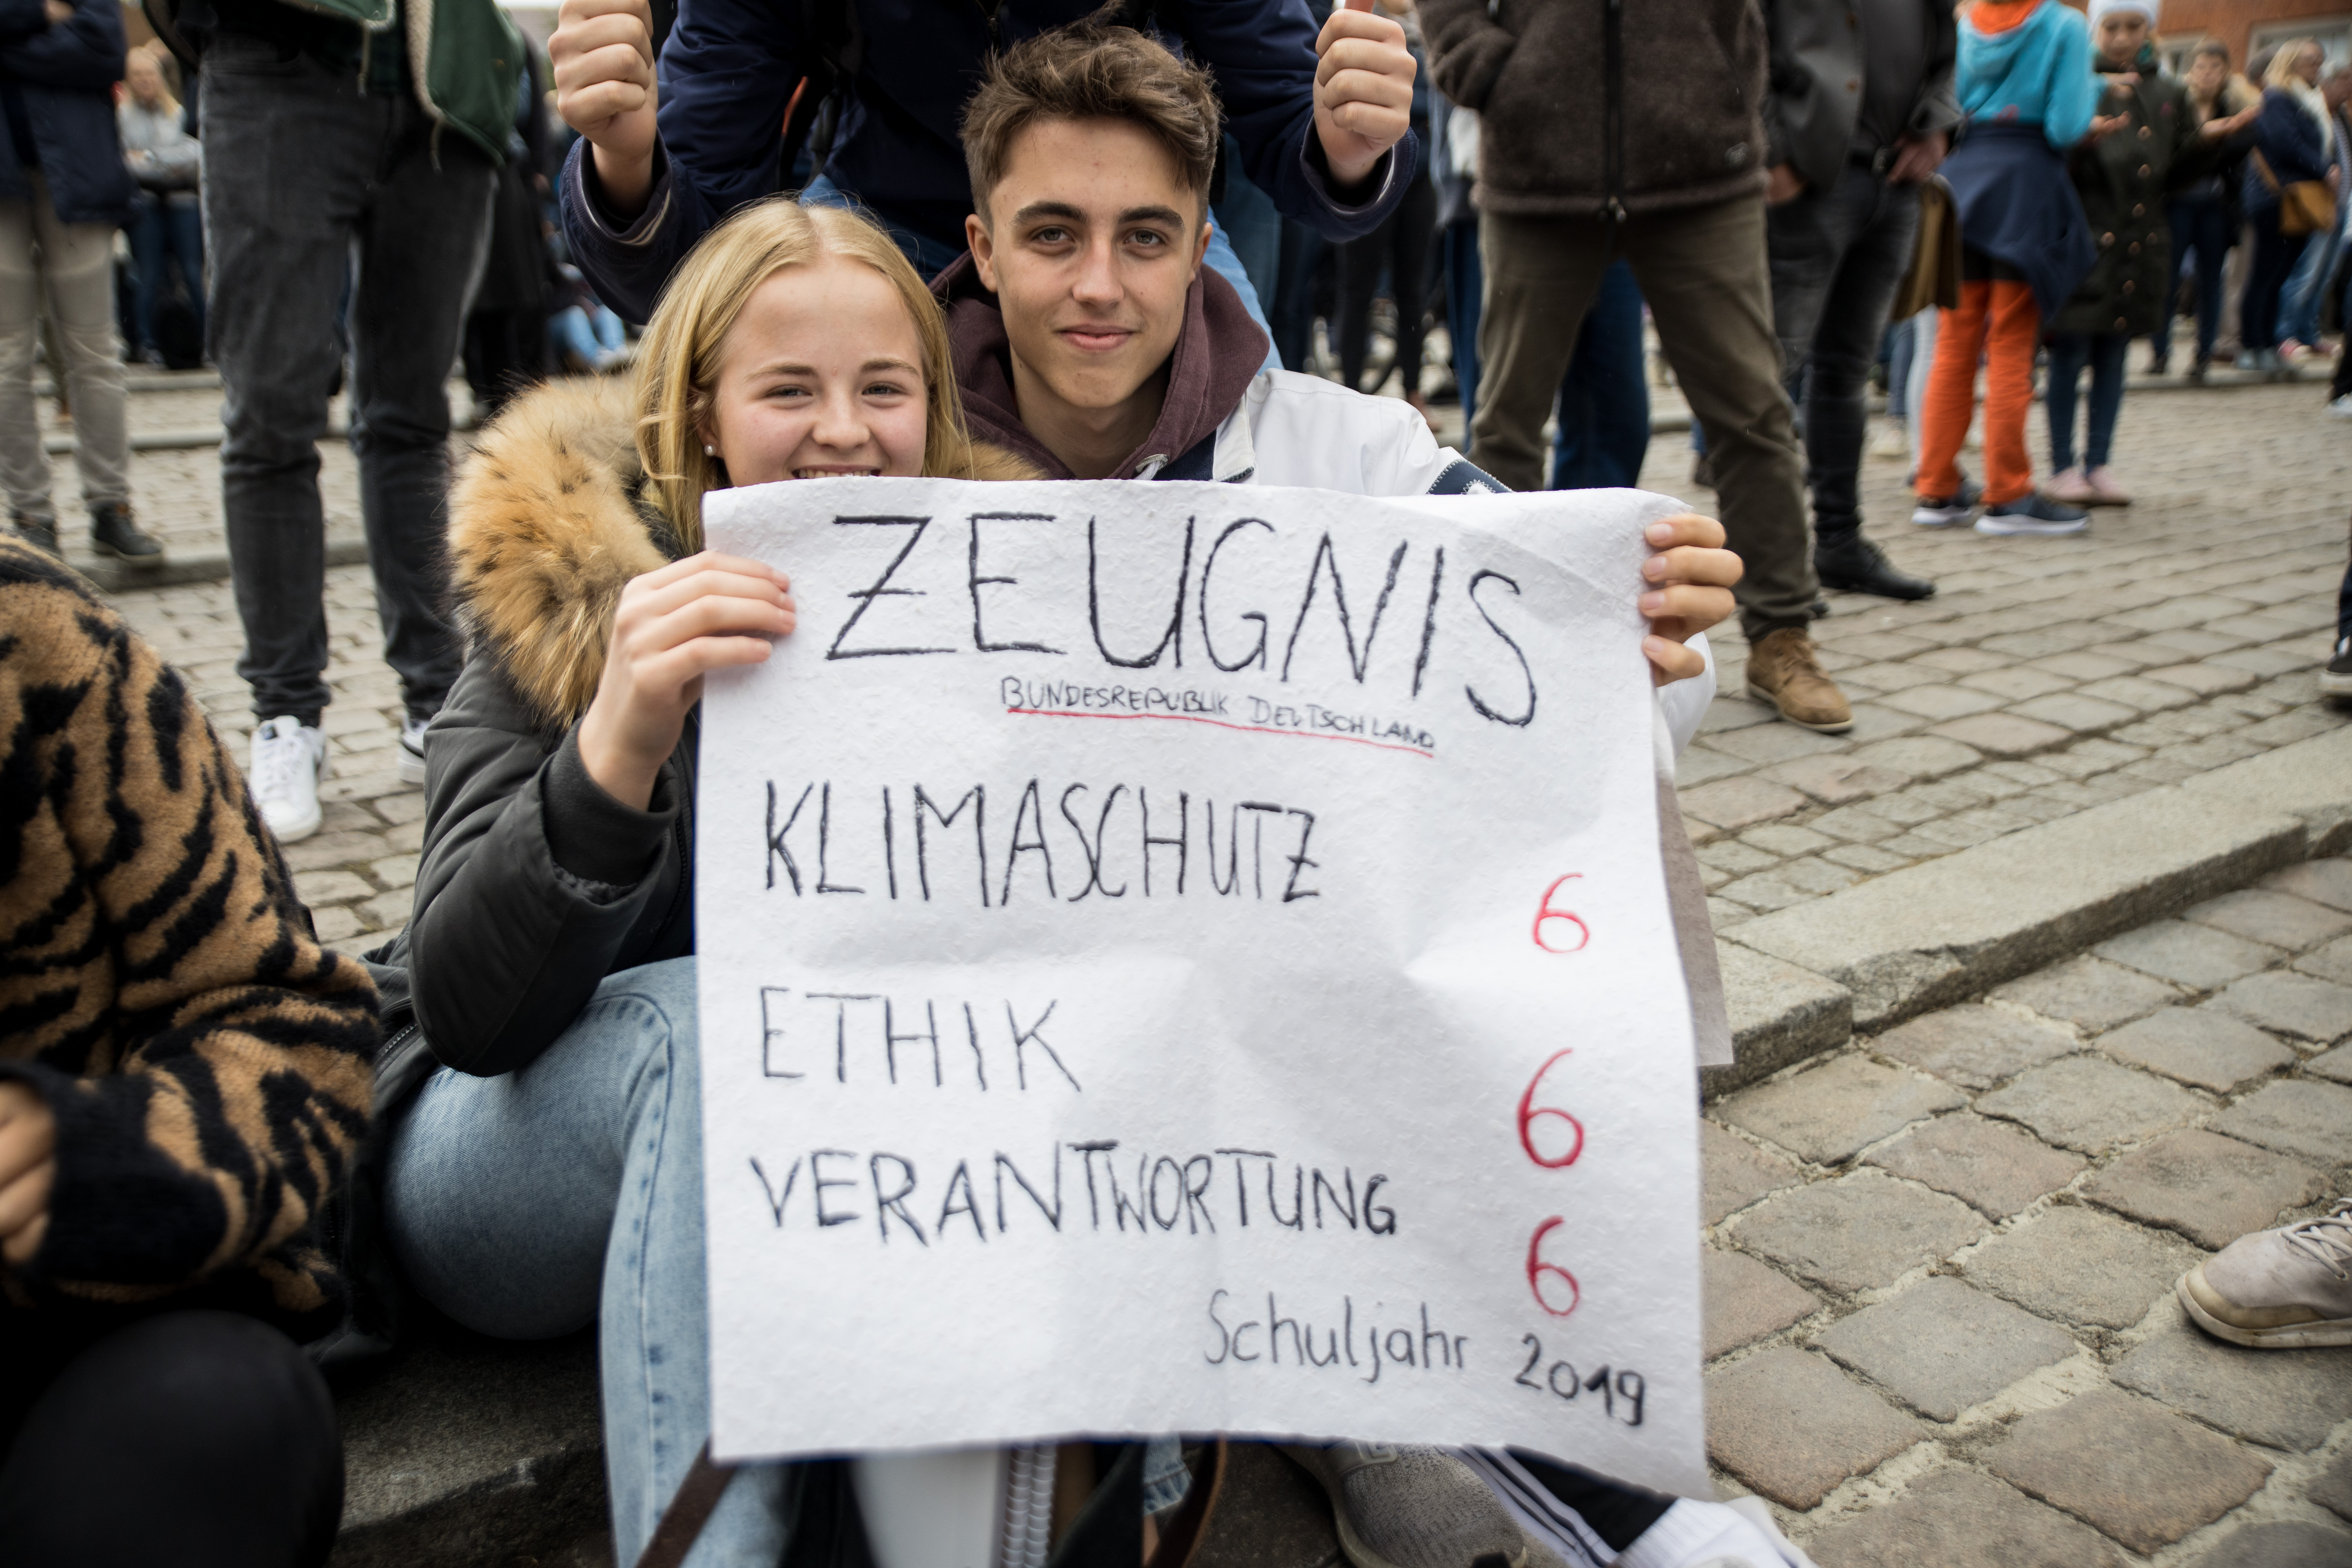 ZEUGNIS
BUNDESREPUBLIK DEUTSCHLAND
KLIMASCHUTZ 6
ETHIK 6
VERANTWORTUNG 6
Schuljahr 2019